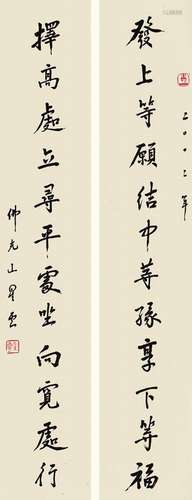 發上等願結中等緣享下等福
二〇〇二年
擇高處立尋平處坐向寬處行
佛光山星雲